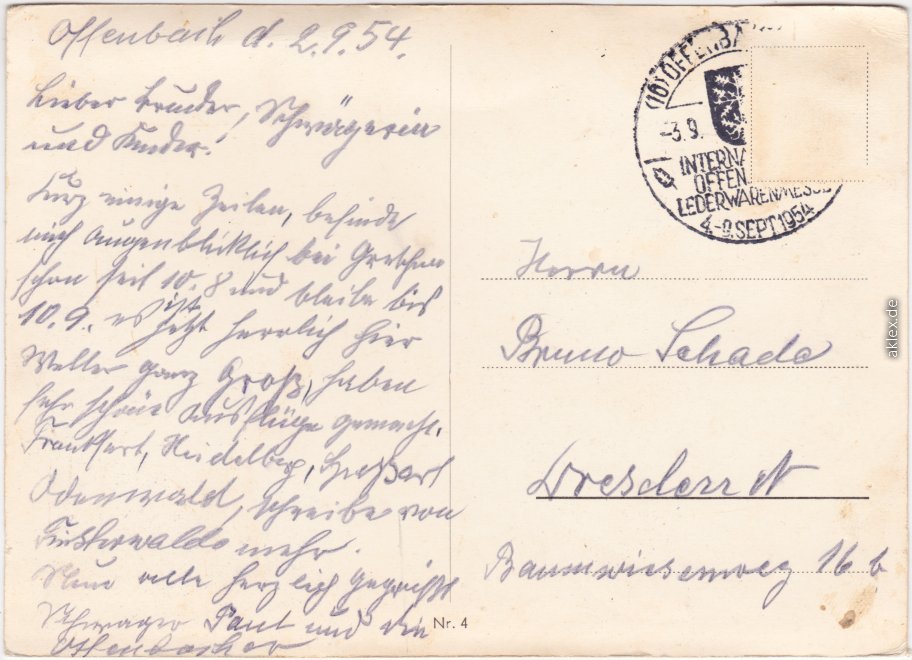 Offenbach d. 2.9.54.
Lieber Bruder, Schwägerin
und Kinder!
Kurz einige Zeilen, befinde
mich Augenblicklich bei Gretchen
schon seit 10.8 und bleibe bis
10.9. es ist jetzt herrlich hier
Wetter ganz Groß, haben
sehr schöne Ausflüge gemacht.
Frankfurt, Heidelberg,
Odenwald, schreibe von
Finsterwalde mehr.
Nun alle herzlich Gegrüßt
Schwager Paul und die
Offenbacher
Nr. 4
(16) OFFENBA
-3.9.
INTERNA
OFFEN
LEDERWARENMESSE
4.-9. SEPT 1954
Herrn
Bruno Schade
Dresden N
Baumwiesenweg 16 b
aklex.de